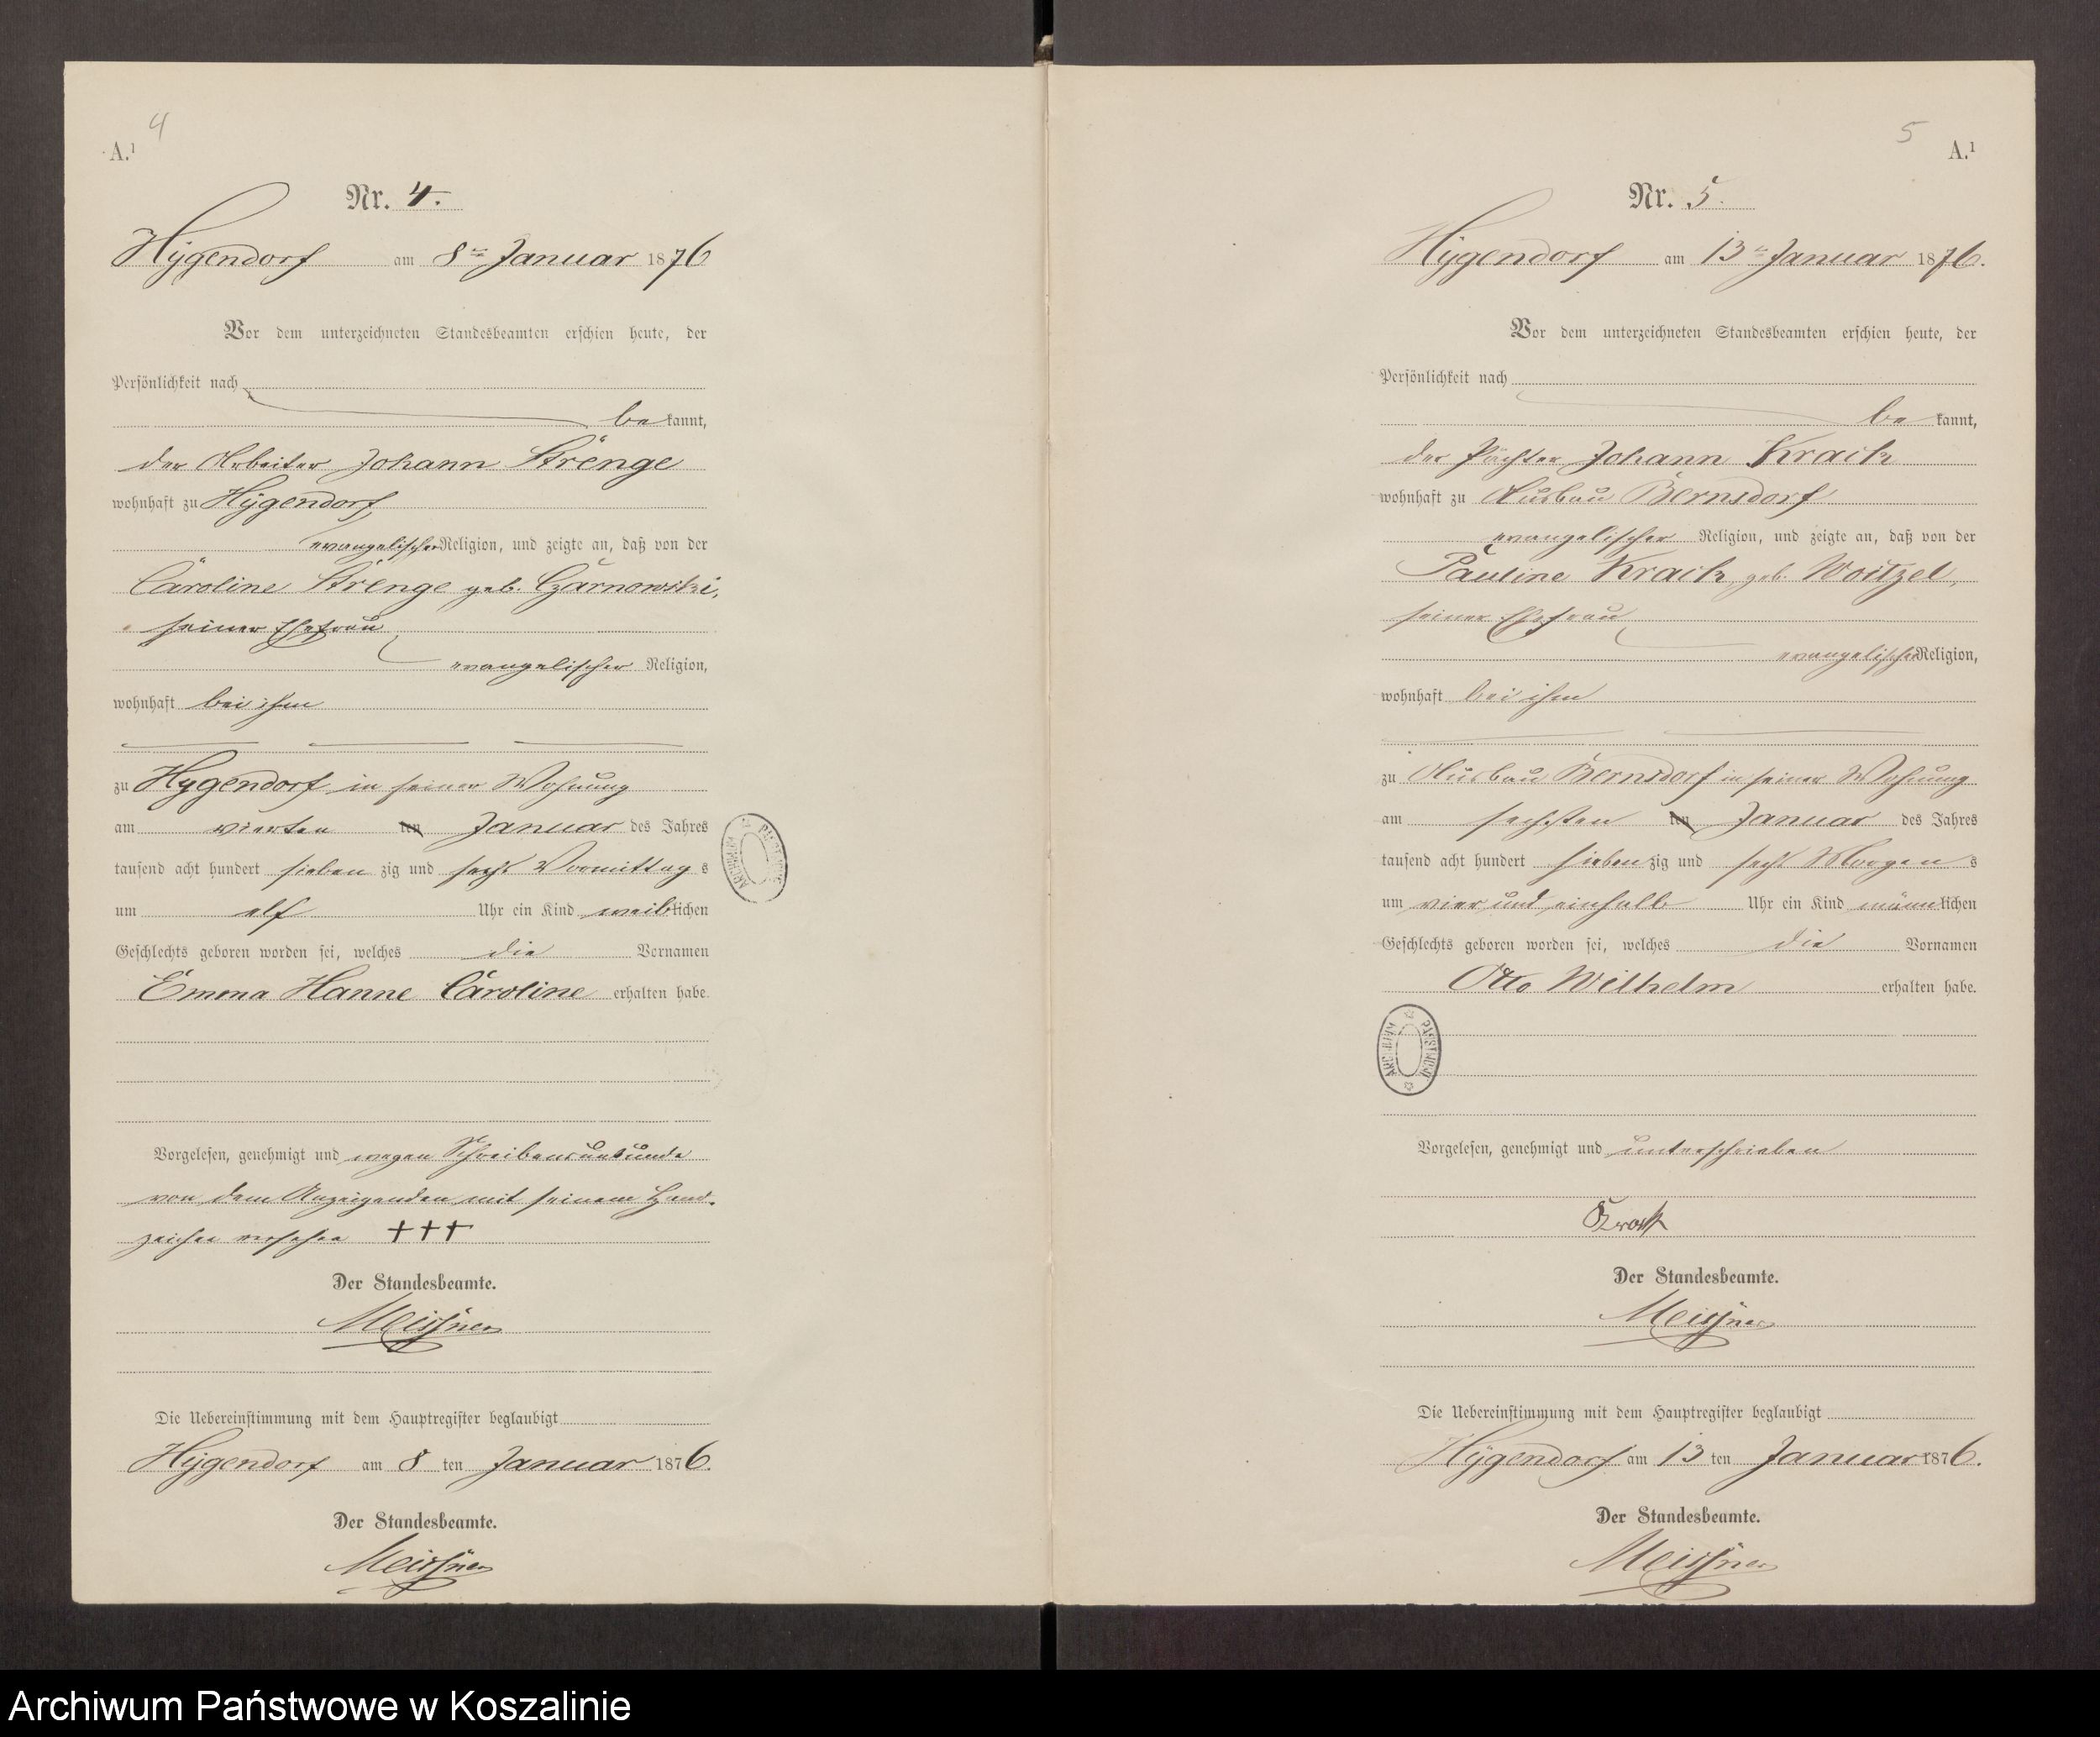 4
A.¹
Nr. 4.
Hÿgendorf am 8ten Januar 1876
Vor dem unterzeichneten Standesbeamten erschien heute, der
Persönlichkeit nach
bekannt,
der Arbeiter Johann Strenge
wohnhaft zu Hÿgendorf,
evangelischer Religion, und zeigte an, daß von der
Caroline Strenge geb. Czarnowski,
seiner Ehefrau
evangelischer Religion,
wohnhaft bei ihm
zu Hygendorf in seiner Wohnung
am vierten ten Januar des Jahres
tausend acht hundert sieben zig und sechs Vormittags
um elf Uhr ein Kind weiblichen
Geschlechts geboren worden sei, welches die Vornamen
Emma Hanne Caroline erhalten habe.
Vorgelesen, genehmigt und wegen Schreibensunkunde
von dem Anzeigenden mit seinem Hand-
zeichen versehen +++
Der Standesbeamte.
Meissner
Die Uebereinstimmung mit dem Hauptregister beglaubigt
Hÿgendorf am 8 ten Januar 1876.
Der Standesbeamte.
Meissner
5
A.¹
Nr. 5.
Hÿgendorf am 13ten Januar 1876.
Vor dem unterzeichneten Standesbeamten erschien heute, der
Persönlichkeit nach
bekannt,
der Pächter Johann Krack
wohnhaft zu Ausbau Bernsdorf
evangelischer Religion, und zeigte an, daß von der
Pauline Krack geb. Woitzel,
seiner Ehefrau
evangelischer Religion,
wohnhaft bei ihm
zu Ausbau Bernsdorf in seiner Wohnung
am sechsten ten Januar des Jahres
tausend acht hundert sieben zig und sechs Morgens
um vier und einhalb Uhr ein Kind männlichen
Geschlechts geboren worden sei, welches die Vornamen
Otto Wilhelm erhalten habe.
Vorgelesen, genehmigt und unterschrieben
Krack
Der Standesbeamte.
Meissner
Die Uebereinstimmung mit dem Hauptregister beglaubigt
Hÿgendorf am 13 ten Januar 1876.
Der Standesbeamte.
Meissner
Archiwum Państwowe w Koszalinie